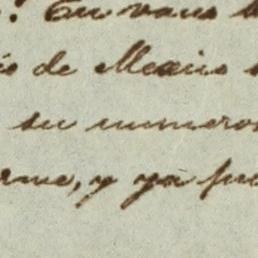 ! En vano
de Mexico
su numeros
rme, y ya fue